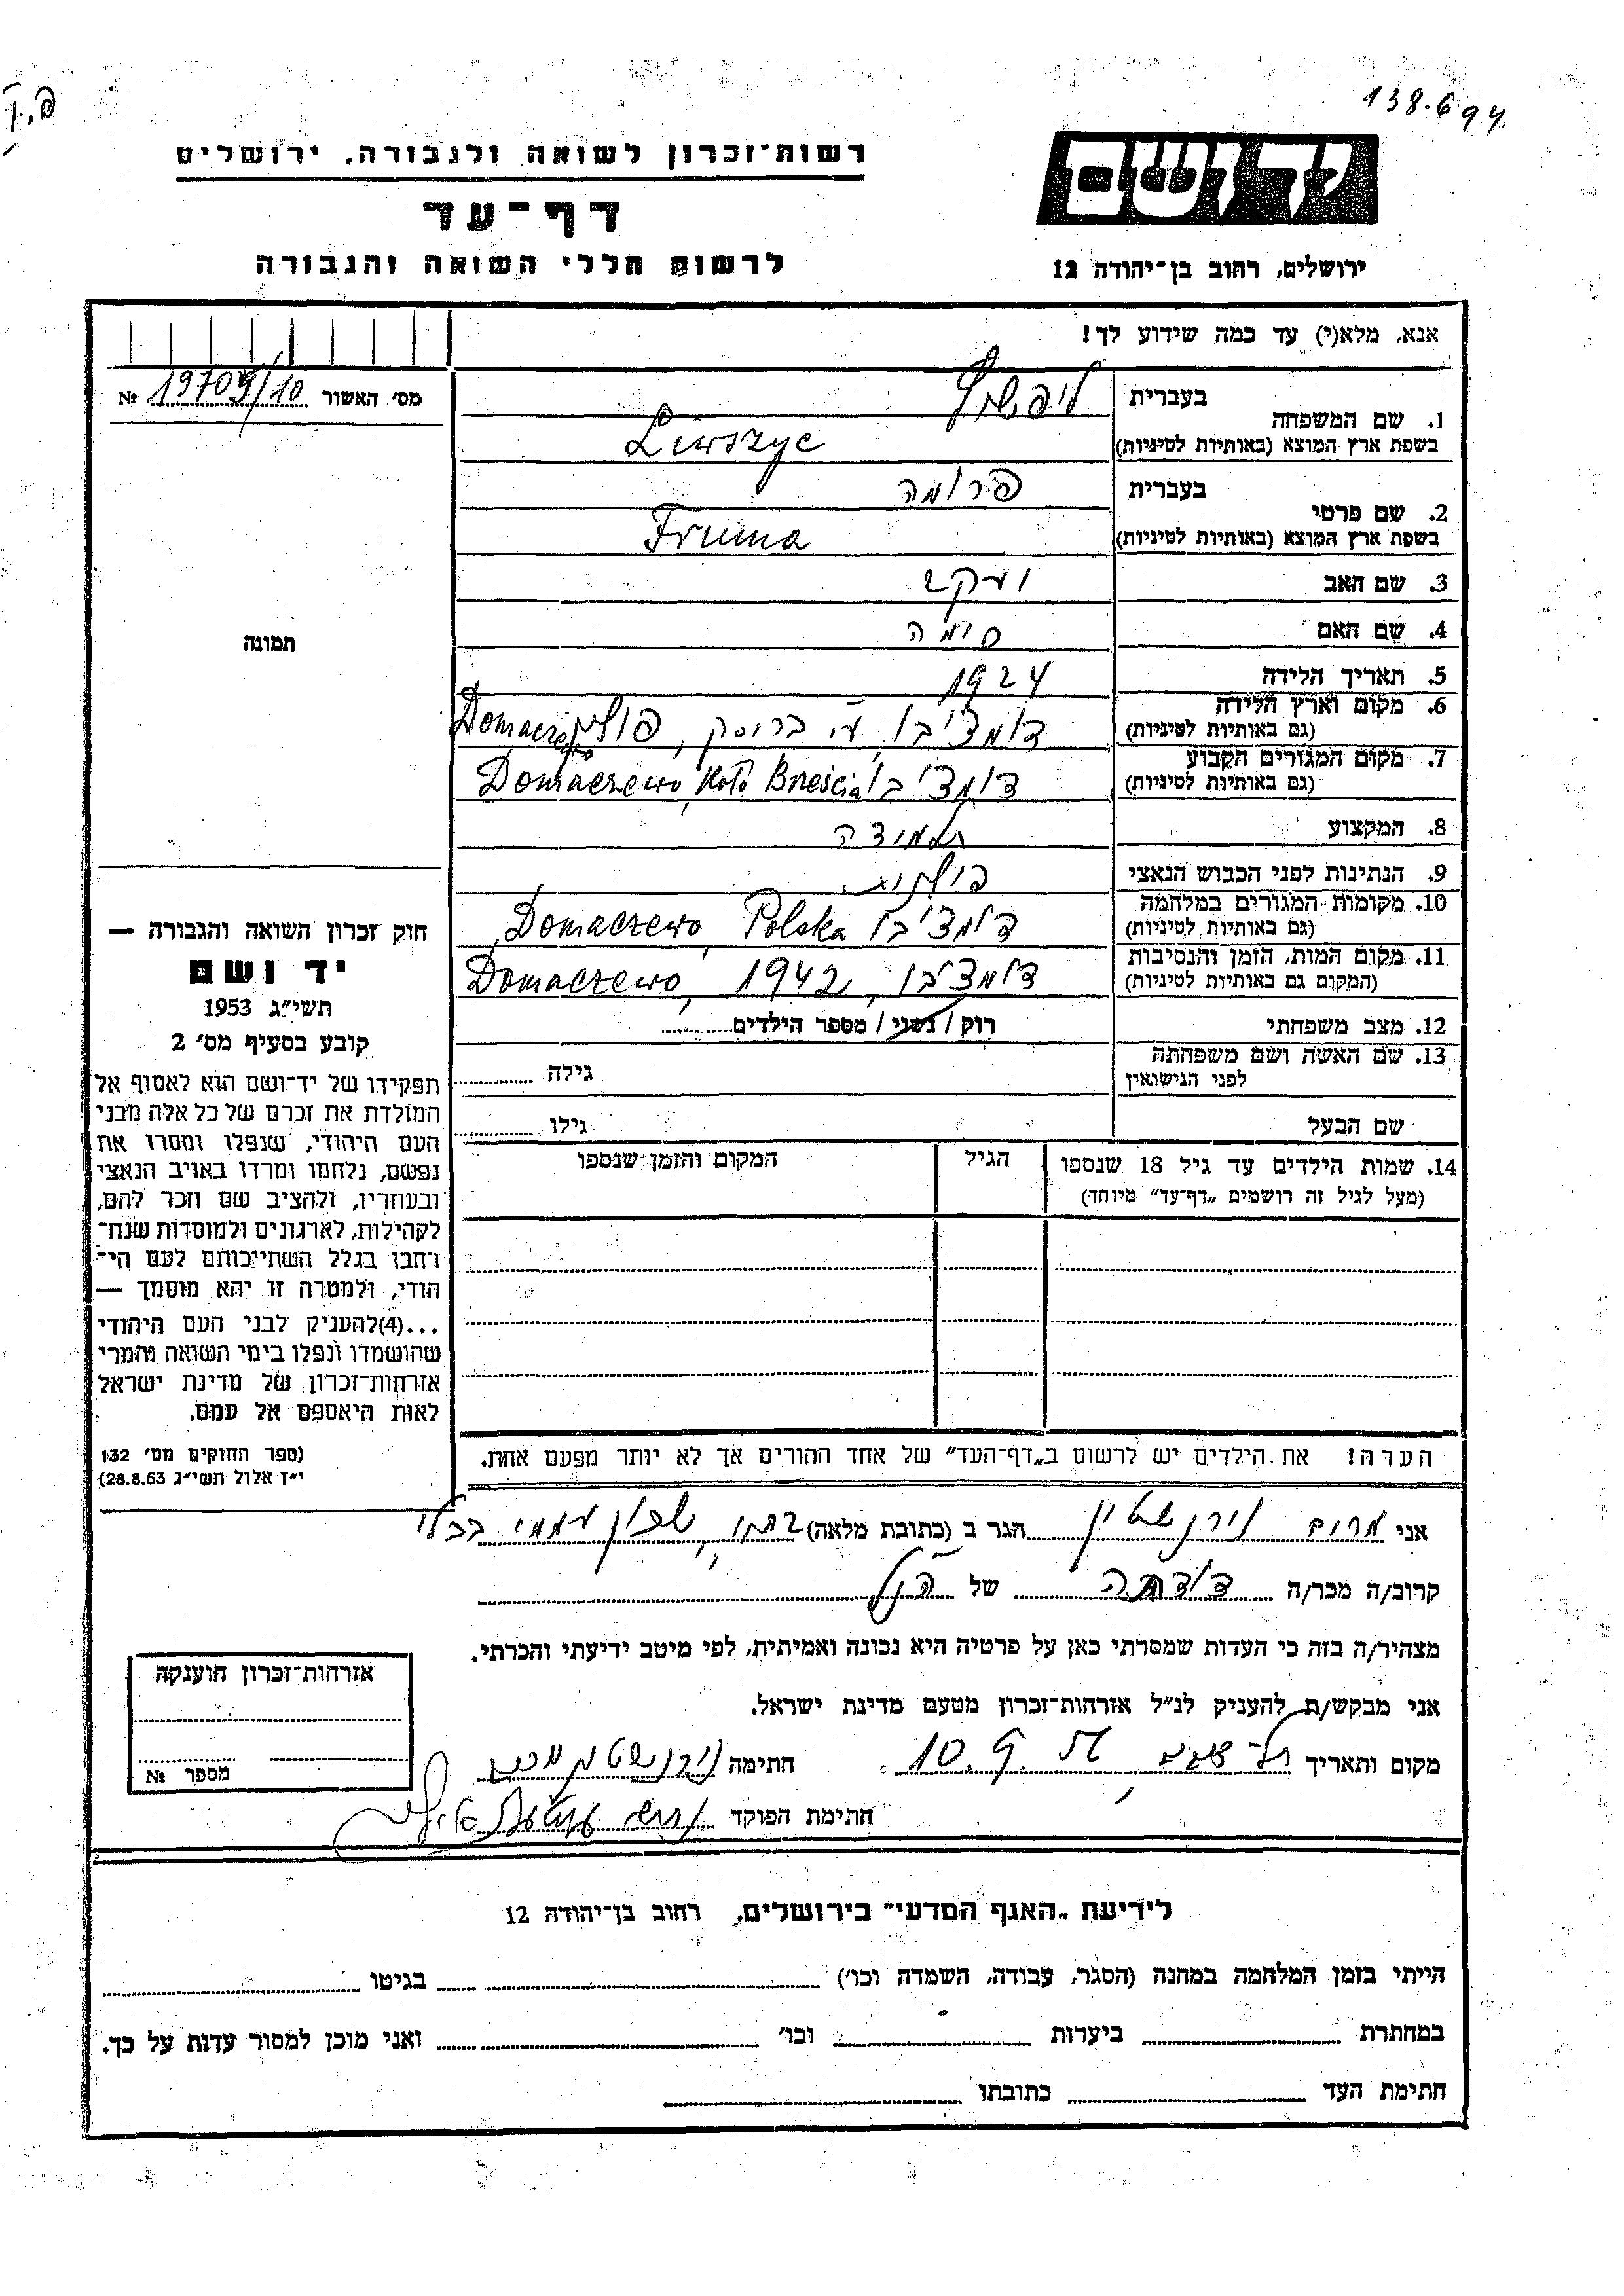 138.694
פ.ך
יד ושם
רשות־זכרון לשואה ולגבורה, ירושלים
דף־עד
ירושלים, רחוב בן־יהודה 12
לרשום חללי השואה והגבורה
אנא, מלא(י) עד כמה שידוע לך!
מס׳ האשור 19709/10 №
1. שם המשפחה
בעברית ליפשיץ
בשפת ארץ המוצא (באותיות לטיניות) Liwszyc
2. שם פרטי
בעברית פרומה
בשפת ארץ המוצא (באותיות לטיניות) Fruma
3. שם האב יעקב
4. שם האם סימה
תמונה
5. תאריך הלידה 1924
6. מקום וארץ הלידה
(גם באותיות לטיניות) דומצ'בו, ע"י בריסק, פולין Domaczewo
7. מקום המגורים הקבוע
(גם באותיות לטיניות) דומצ'בו Domaczewo, koło Brześcia
8. המקצוע תלמידה
9. הנתינות לפני הכבוש הנאצי פולנית
10. מקומות המגורים במלחמה
(גם באותיות לטיניות) דומצ'בו Domaczewo, Polska
11. מקום המות, הזמן והנסיבות
(המקום גם באותיות לטיניות) דומצ'בו, 1942, Domaczewo
12. מצב משפחתי רוק / נשוי / מספר הילדים
13. שם האשה ושם משפחתה
לפני הנישואין
גילה
שם הבעל
גילו
14. שמות הילדים עד גיל 18 שנספו
(מעל לגיל זה רושמים „דף־עד” מיוחד)
הגיל
המקום והזמן שנספו
חוק זכרון השואה והגבורה —
יד ושם
תשי״ג 1953
קובע בסעיף מס׳ 2
תפקידו של יד־ושם הוא לאסוף אל
המולדת את זכרם של כל אלה מבני
העם היהודי, שנפלו ומסרו את
נפשם, נלחמו ומרדו באויב הנאצי
ובעוזריו, ולהציב שם וזכר להם,
לקהילות, לארגונים ולמוסדות שנח־
רחבו בגלל השתייכותם לעם הי־
הודי, ולמטרה זו יהא מוסמך —
...(4)להעניק לבני העם היהודי
שהושמדו ונפלו בימי השואה והמרי
אזרחות־זכרון של מדינת ישראל
לאות היאספם אל עמם.
(ספר החוקים מס׳ 132
י״ז אלול תשי״ג 28.8.53)
הערה! את הילדים יש לרשום ב„דף־העד” של אחד ההורים אך לא יותר מפעם אחת.
אני מרים נירנשטין הגר ב (כתובת מלאה) שכון עממי
קרוב/ה מכר/ה דודתה של הנ"ל
מצהיר/ה בזה כי העדות שמסרתי כאן על פרטיה היא נכונה ואמיתית, לפי מיטב ידיעתי והכרתי.
אני מבקש/ת להעניק לנ״ל אזרחות־זכרון מטעם מדינת ישראל.
מקום ותאריך 10.9. חתימה נירנשטין
חתימת הפוקד
אזרחות־זכרון הוענקה
מספר №
לידיעת „האגף המדעי” בירושלים, רחוב בן־יהודה 12
הייתי בזמן המלחמה במחנה (הסגר, עבודה, השמדה וכו׳) בגיטו
במחתרת ביערות וכו׳ ואני מוכן למסור עדות על כך.
חתימת העד כתובתו